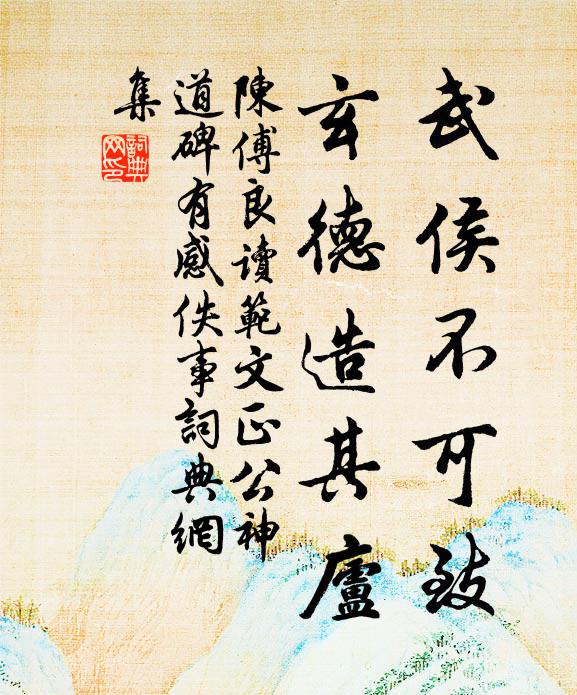 武侯不可致
玄德造其廬
陳傅良讀範文正公神
道碑有感佚事詞典網
集
詞典
网印